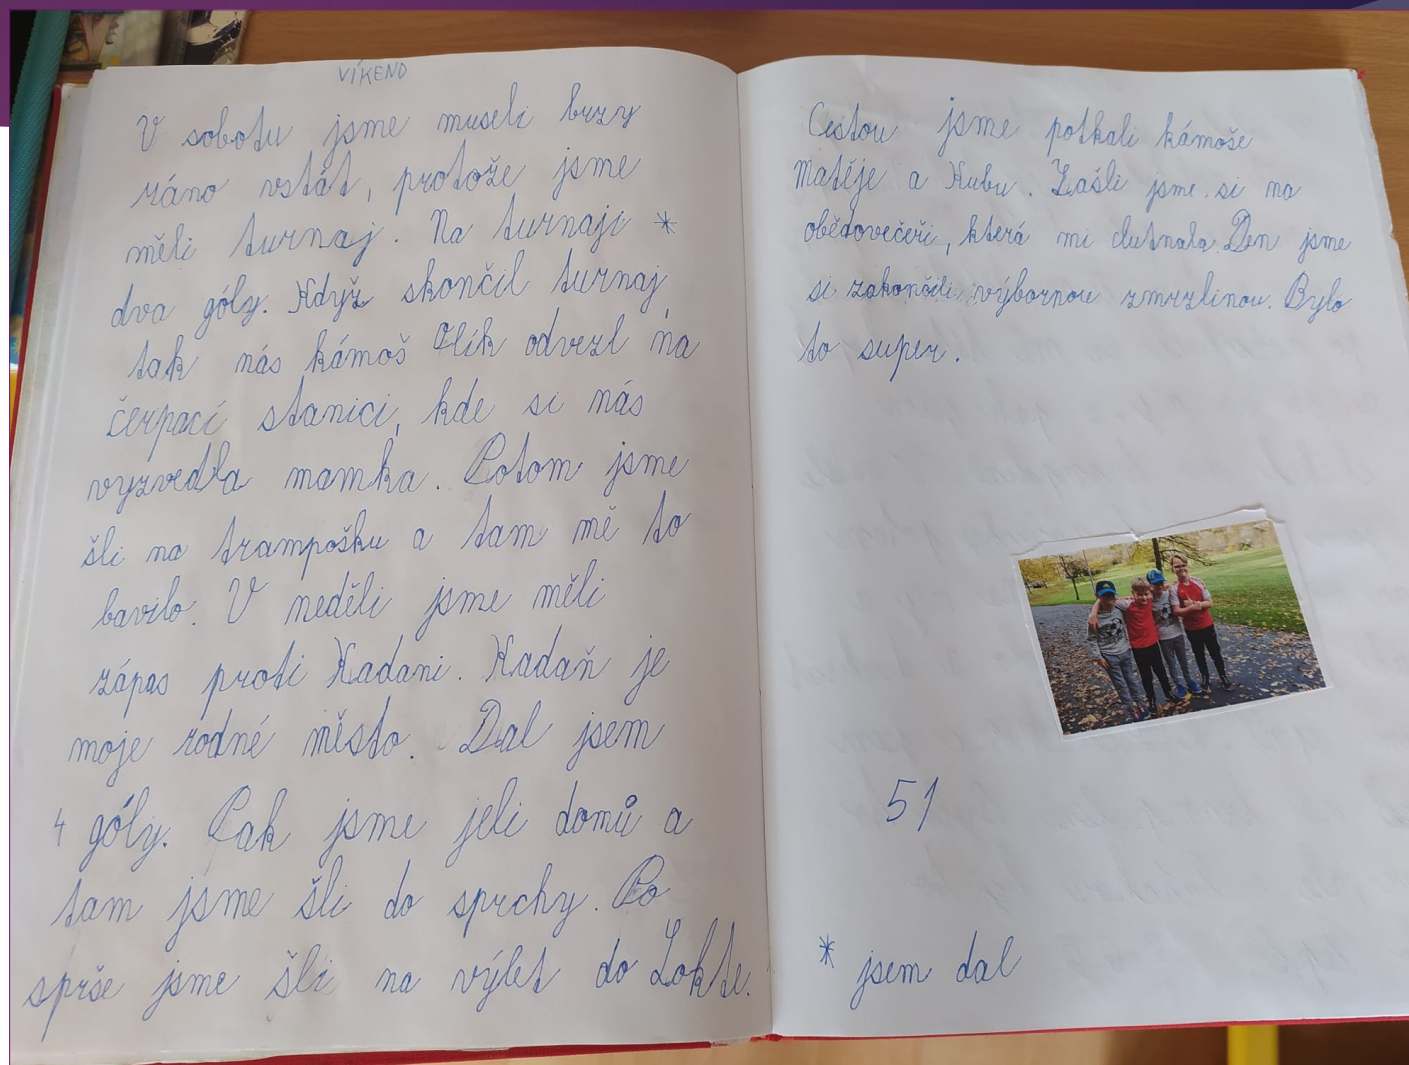 VÍKEND
V sobotu jsme museli brzy
ráno vstát, protože jsme
měli turnaj. Na turnaji *
dva góly. Když skončil turnaj,
tak nás kámoš Olík odvezl na
čerpací stanici, kde si nás
vyzvedla mamka. Potom jsme
šli na trampošku a tam mě to
bavilo. V neděli jsme měli
zápas proti Kadani. Kadaň je
moje rodné město. Dal jsem
4 góly. Pak jsme jeli domů a
tam jsme šli do sprchy. Po
sprše jsme šli na výlet do Lokte.
Cestou jsme potkali kámoše
Matěje a Kubu. Zašli jsme si na
obědovečeři, která mi chutnala. Den jsme
si zakončili výbornou zmrzlinou. Bylo
to super.
51
* jsem dal